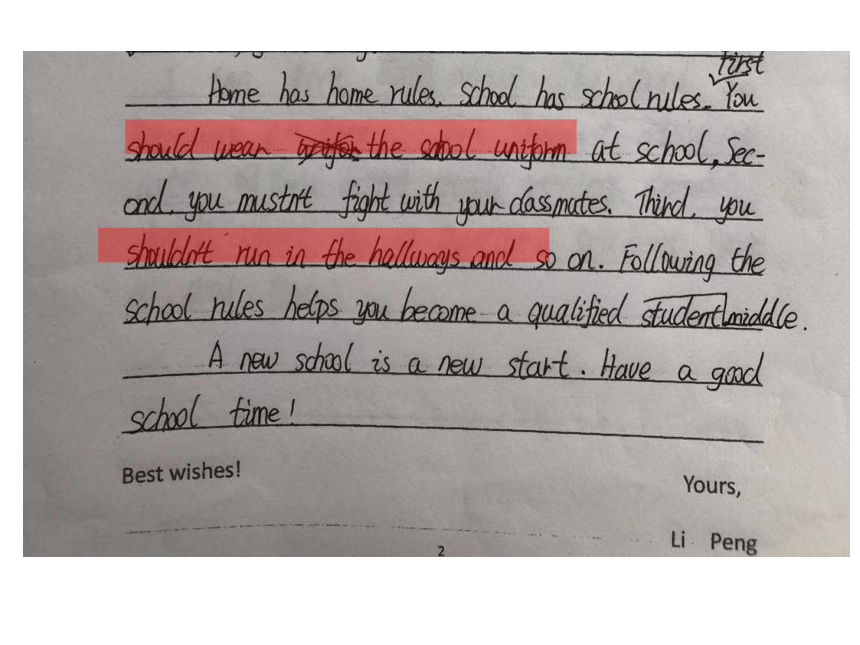 first
Home has home rules. School has school rules. You
should wear the school uniform at school, Sec-
ond, you mustn't fight with your classmates. Third, you
shouldn't run in the hallways and so on. Following the
school rules helps you become a qualified student middle.
A new school is a new start. Have a good
school time!
Best wishes!
Yours,
Li Peng
2